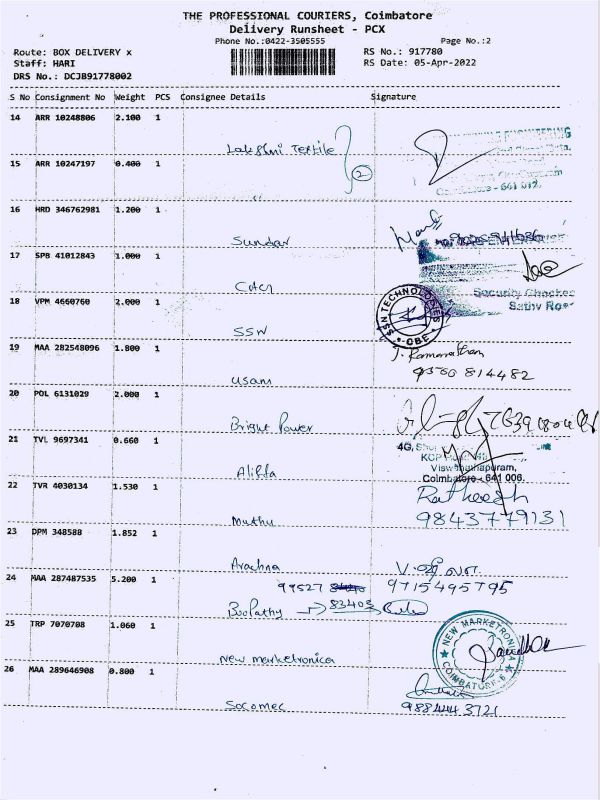 THE PROFESSIONAL COURIERS, Coimbatore
Delivery Runsheet - PCX
Phone No.:0422-3505555
Page No.:2
Route: BOX DELIVERY x
RS No.: 917780
Staff: HARI
RS Date: 05-Apr-2022
DRS No.: DCJB91778002
S No Consignment No Weight PCS Consignee Details Signature
14 ARR 10248806 2.100 1
Lakshmi Textile
15 ARR 10247197 0.400 1
2
Coimbatore - 641 012.
16 HRD 346762981 1.200 1
Sundar
17 SPB 41012843 1.000 1
Security Checked
18 VPM 4660760 2.000 1
SSN TECHNOLOGIES CBE
SSN
19 MAA 282548096 1.800 1
J. Ramanathan
9360814482
Usam
20 POL 6131029 2.000 1
Bright Power
21 TVL 9697341 0.660 1
4G,
KCP
Viswanathapuram,
Coimbatore - 641 006.
22 TVR 4030134 1.530 1
Ratheesh
9843779131
Muthu
23 DPM 348588 1.852 1
Arachna
24 MAA 287487535 5.200 1
99527
83403
9715495795
Boopathy
25 TRP 7070708 1.060 1
NEW MARKETRONICA
COIMBATORE-6
New marketronica
26 MAA 289646908 0.800 1
Socomec
988444 3721